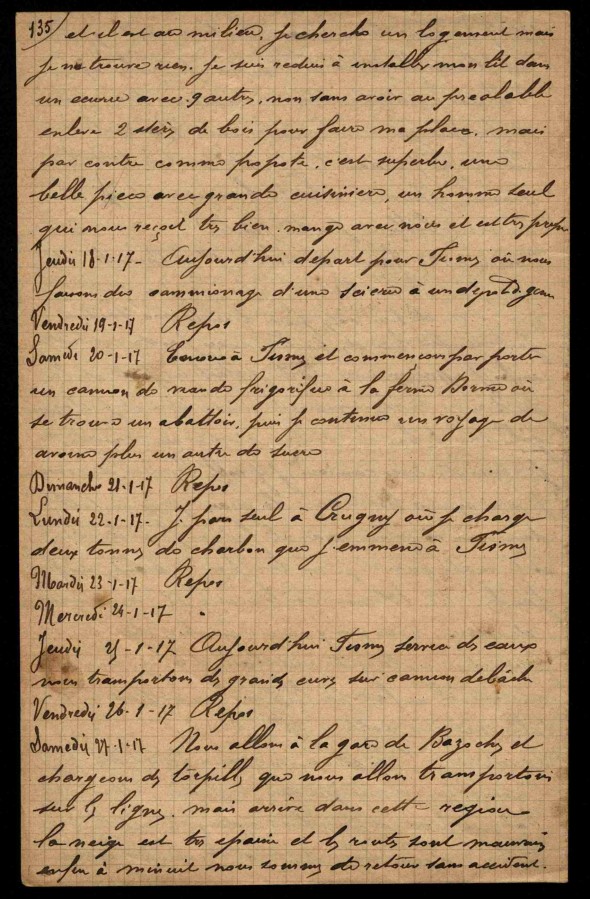 135
et il est au milieu, je cherche un logement mais
je ne trouve rien. Je suis reduis à installer mon lit dans
un avec 9 autres, non sans avoir au prealable
enleve 2 stères de bois pour faire ma place. mais
par contre comme popote, c'est superbe, une
belle piece avec grande cuisiniere, un homme seul
qui nous reçoit tres bien. mange avec nous et est tres propre
Jeudi 18-1-17 - Aujourd'hui depart pour où nous
faisons du cammionage d'une scierie à un depot de genie
Vendredi 19-1-17 Repos
Samedi 20-1-17 à et commençons par porter
un camion de viande frigorifiée à la ferme où
se trouve un abattoir, puis je continue un voyage de
avoine plus un autre de sucre
Dimanche 21-1-17 Repos
Lundi 22-1-17 - Je pars seul à Crugny où je charge
deux tonnes de charbon que j'emmene à
Mardi 23-1-17 Repos
Mercredi 24-1-17 "
Jeudi 25-1-17 Aujourd'hui service des eaux
nous transportons des grandes cuves sur camion debâché
Vendredi 26-1-17 Repos
Samedi 27-1-17 Nous allons à la gare de Bazoches et
chargeons des torpilles que nous allons transportons
sur les lignes. mais arrivé dans cette region
la neige est tres epaisse et les routes sont mauvaises
enfin à minuit nous sommes de retour sans accident.